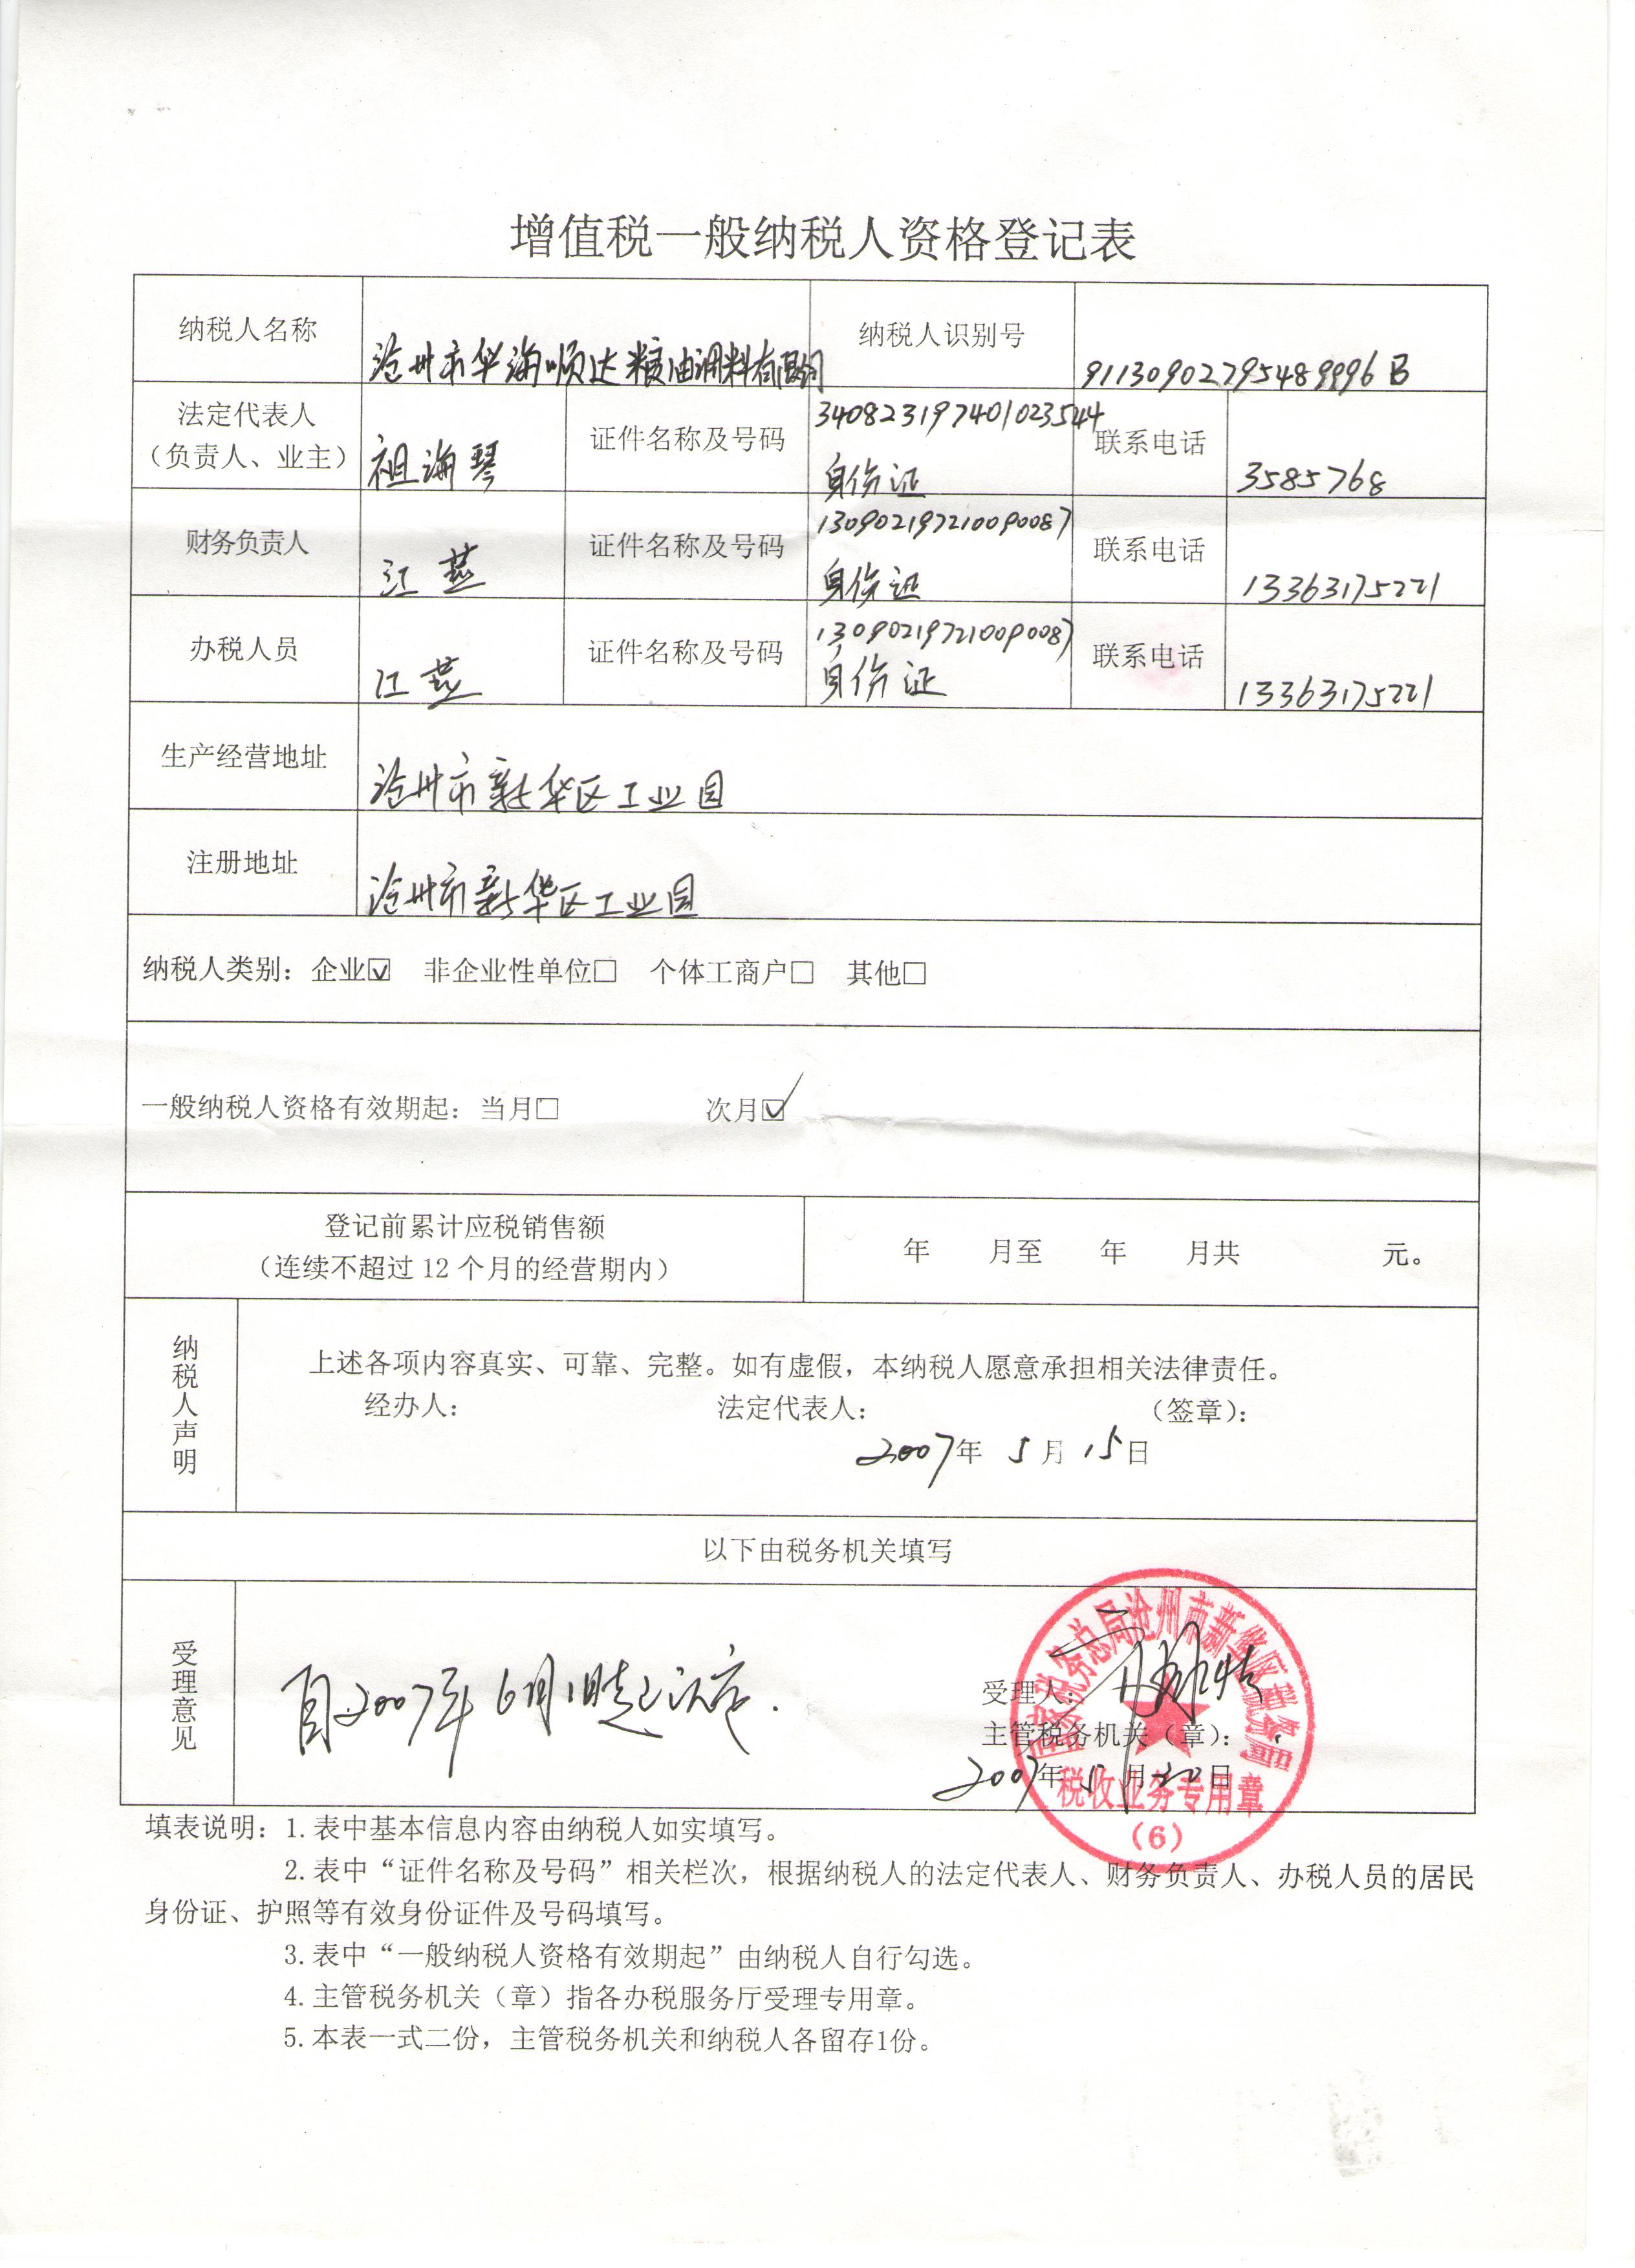 增值税一般纳税人资格登记表
纳税人名称 沧州市华海顺达粮油调料有限公司 纳税人识别号 91130902795489996B
法定代表人（负责人、业主） 祖海琴 证件名称及号码 340823197401023544 身份证 联系电话 3585768
财务负责人 江燕 证件名称及号码 130902197210090087 身份证 联系电话 13363175221
办税人员 江燕 证件名称及号码 130902197210090087 身份证 联系电话 13363175221
生产经营地址 沧州市新华区工业园
注册地址 沧州市新华区工业园
纳税人类别：企业☑ 非企业性单位□ 个体工商户□ 其他□
一般纳税人资格有效期起：当月□ 次月☑
登记前累计应税销售额
（连续不超过12个月的经营期内） 年 月至 年 月共 元。
纳税人声明
上述各项内容真实、可靠、完整。如有虚假，本纳税人愿意承担相关法律责任。
经办人： 法定代表人： （签章）：
2007年 5月 15日
以下由税务机关填写
受理意见
自2007年6月1日起认定.
受理人：
主管税务机关（章）：
2007年 5月 20日
国家税务总局沧州市新华区税务局
税收业务专用章
（6）
填表说明：1.表中基本信息内容由纳税人如实填写。
2.表中“证件名称及号码”相关栏次，根据纳税人的法定代表人、财务负责人、办税人员的居民
身份证、护照等有效身份证件及号码填写。
3.表中“一般纳税人资格有效期起”由纳税人自行勾选。
4.主管税务机关（章）指各办税服务厅受理专用章。
5.本表一式二份，主管税务机关和纳税人各留存1份。